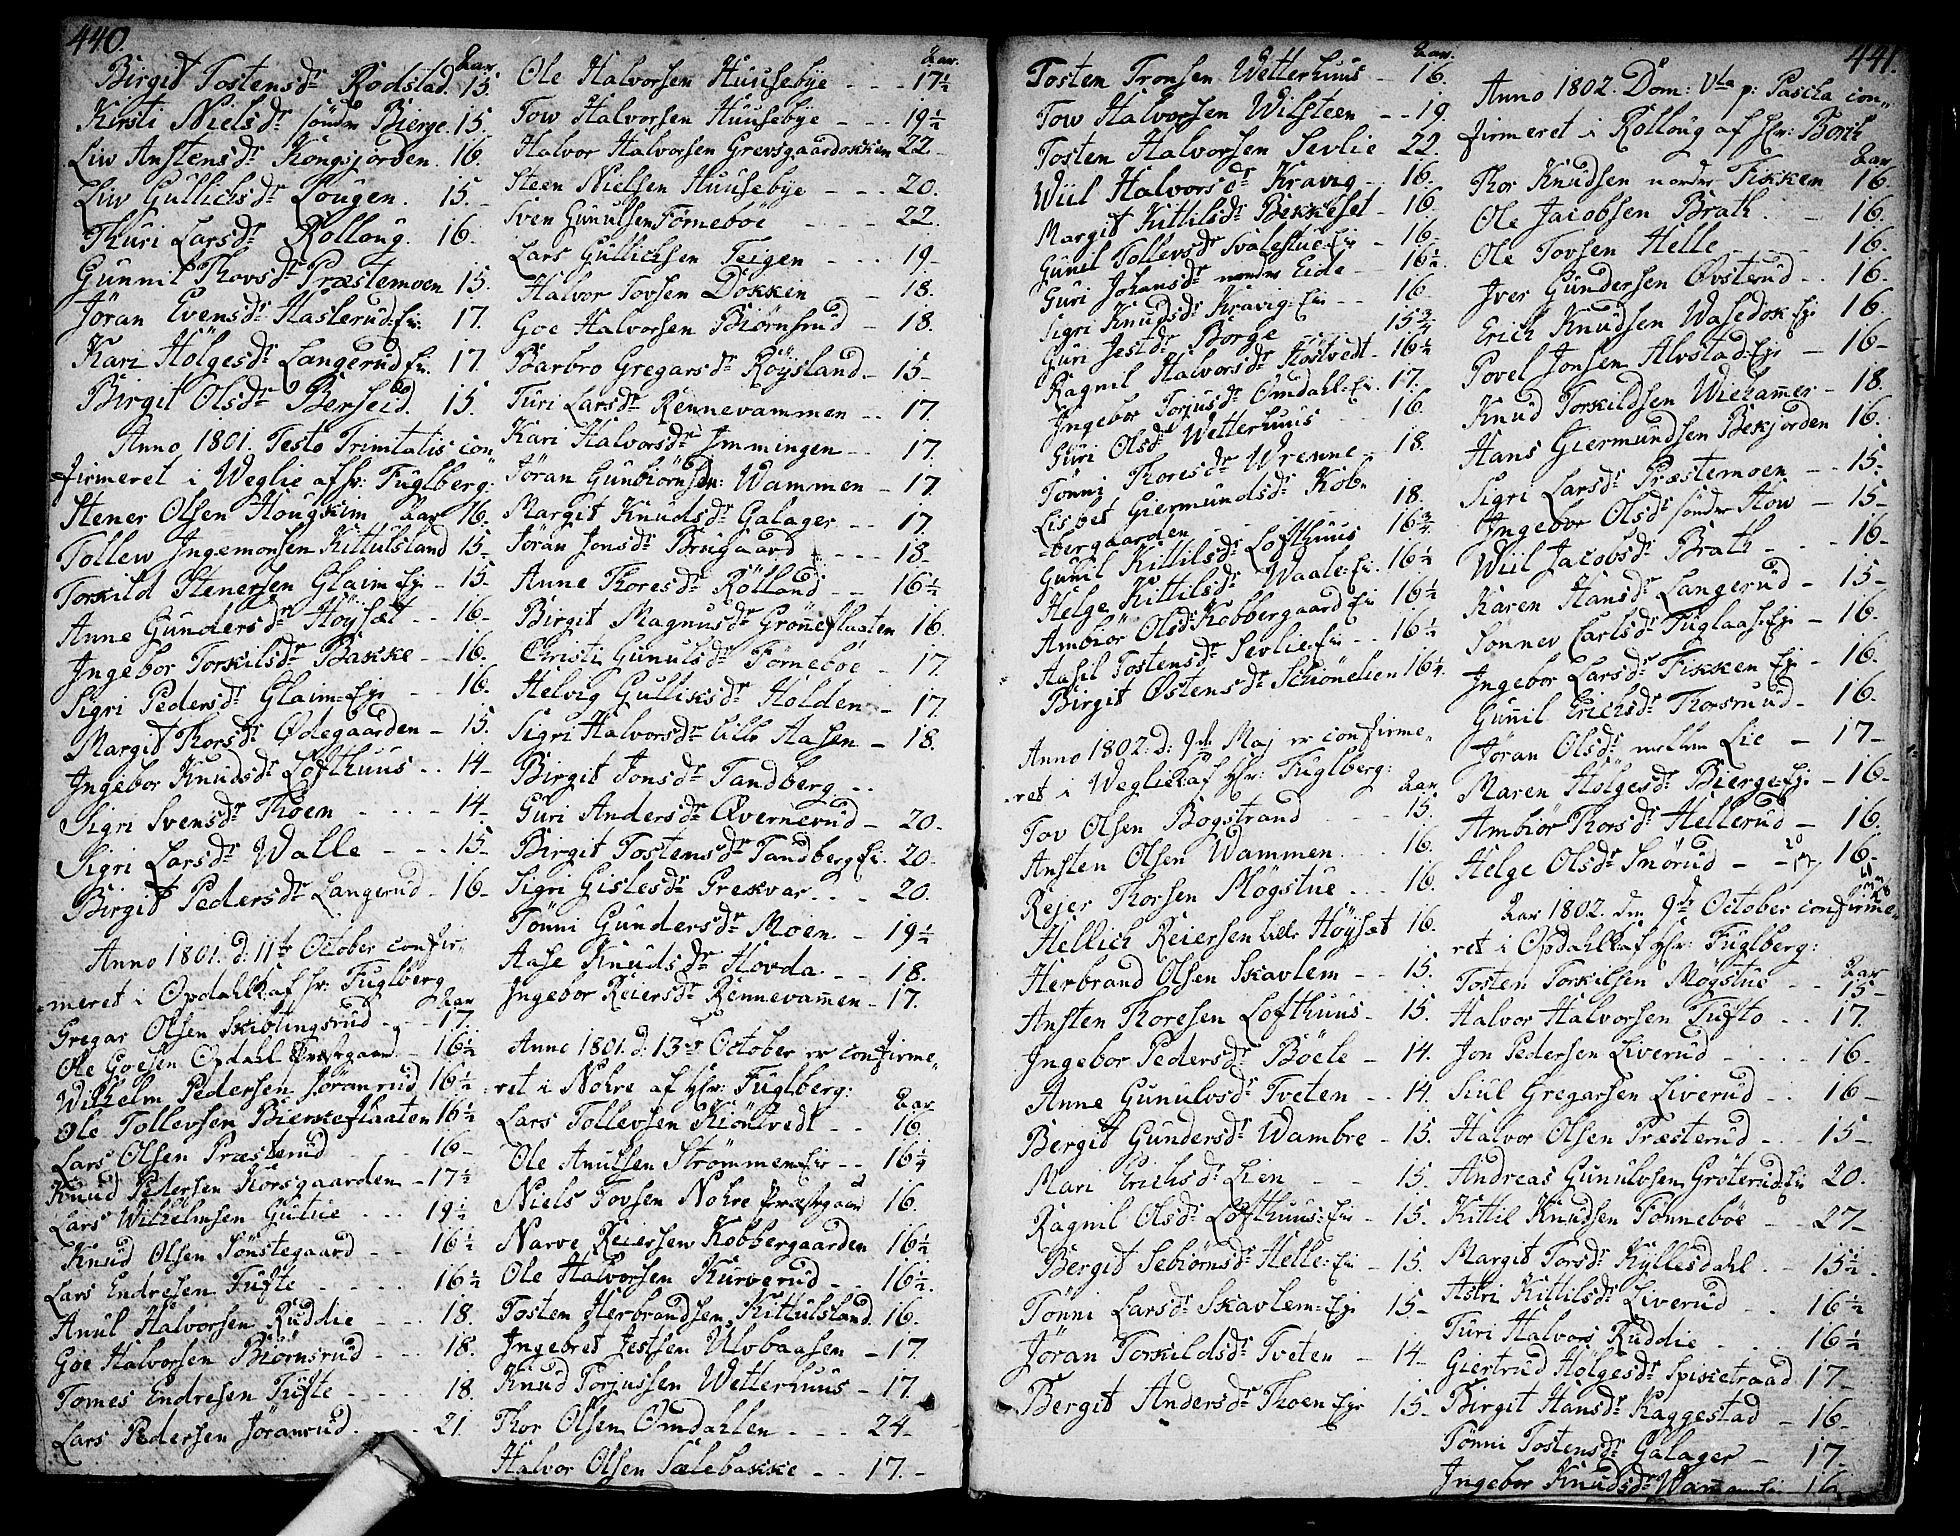 440.
Aar
Birgit Tostensdr Rodstad. 15.
Kirsti Nielsdr söndr Bierge. 15.
Liw Anstensdr Kongsjorden. 16.
Liw Gullichsdr Lougen. 15.
Thuri Larsdr Rolloug. 16.
Gunnil Thovsdr Præstemoen 15.
Jöran Evensdr Haslerud Ei: 17.
Kari Holgesdr Langerud Ei. 17
Birgit Olsdr Berseid. 15.
Anno 1801. Festo Trinitatis con
firmeret i Weglie af hr: Fuglberg:
Stener Olsen Hougkim Aar 16.
Tollew Ingemonsen Kittulsland 15.
Torkild Stenersen Glaim Ei - 15.
Anne Gundersdr Höysæt - - 16-
Ingebor Torkilsdr Bakke - 16.
Sigri Pedersdr Glaim Ei - - 16.
Margit Thorsdr Ødegaarden - 15.
Ingebor Knudsdr Lofthuus - - 14-
Sigri Svensdr Thoen - - - - 14-
Sigri Larsdr Walle - - - 15-
Birgit Pedersdr Langerud - 16-
Anno 1801. d: 11te October confir
meret i Opdahl af hr: Fuglberg
Aar
Gregar Olsen Skiblingsrud - - 17.
Ole Goesen Opdahl Præstegaard - 16½
Wilhelm Pedersen Jöranrud 16½
Ole Tollevsen Bierkeflaaten 16½
Lars Olsen Præsterud - 16-
Knud Pedersen Korsgaarden - 17½
Lars Wilhelmsen Gutue - - - 19½
Knud Olsen Sönstegaard - - 16½
Lars Endresen Tufte - - - - 16½
Anul Halvorsen Ruddie - - - 18.
Goe Halvorsen Biörnsrud - - - 18.
Tomes Endresen Tufte - - - - 18.
Lars Pedersen Jöranrud - - - 21.
Aar.
Ole Halvorsen Huusebye - - - 17½
Tow Halvorsen Huusebye - - - 19½
Halvor Halvorsen Grevsgaardokken 22-
Steen Nielsen Huusebye - - - 20.
Sven Gunulsen Förneböe - - - 22.
Lars Gullichsen Teigen - - - 19-
Halvor Tovsen Dokken - 18.
Goe Halvorsen Biörnsrud - 18.
Barbro Gregarsdr Röysland - 15-
Turi Larsdr Rennevammen - - 17.
Kari Halvorsdr Immingen - - 17.
Jöran Gunbiörnsdr: Wammen - 17.
Margit Knudsdr Galager - - 17.
Jöran Jonsdr Brugaard - - - 18-
Anne Thoresdr Rölland - - 16½
Birgit Magnusdr Grönneflaaten 16.
Christi Gunulsdr Förneböe - 17.
Helvig Gulliksdr Holden - - 17.
Sigri Halvorsdr lille Aasen - 18.
Birgit Jonsdr Tandberg - -
Guri Andersdr Øvernevud - 20-
Birgit Tostensdr Tandberg Ei. 20-
Sigri Gislesdr Prekvar - - - 20.
Tönni Gundersdr Moen - - 19½
Aase Knudsdr Hovda - - - 18.
Ingebor Reiersdr Rennevammen - 17.
Anno 1801. d: 13de October er confirme
ret i Nohre af Hr: Fuglberg:
Aar
Lars Tollevsen Kiöntvedt - - 16.
Ole Anulsen Strömmen Ei - - 16¼
Niels Tovsen Nohre Præstegaar 16.
Narve Reiersen Kobbergaarden 16½
Ole Halvorsen Kurverud - - 16½.
Tosten Herbrandsen Kittulsland 16.
Ingebret Jestsen Ulvbaasen - 17.
Knud Torjussen Wetterhuus - 17.
Thor Olsen Omdahlen - - - 24-
Halvor Olsen Sælebakke - - 17. -
441.
Aar.
Tosten Tronsen Wetterhuus - 16.
Tow Halvorsen Wilsteen - - 19.
Tosten Halvorsen Sevlie 22.
Wiil Halvorsdr Kravig - 16.
Margit Kittilsdr Bekkeset - 16.
Gunil Tollevsdr Svalestue Ei - 16.
Guri Johansdr nordre Eide - - 16½
Sigri Knudsdr Kravig Ei - - 16.
Guri Jestdr Borge - - 15¾
Ragnil Halvorsdr Kostvedt - 16½
Ingebor Torjusdr Omdahl Ei. 17.
Guri Olsdr Wetterhuus 16.
Tönni Thoresdr Wrenne - 18.
Lisbet Giermundsdr Kob-
bergaarden 18.
Gunil Kittilsdr Lofthuus 16¾
Helge Kittilsdr Waale Ei. 16½
Ambiör Olsdr Kobbergaard Ei 16½
Aasil Tostensdr Sevlie Ei - - 16½
Birgit Østensdr Schiönelien 16¼.
Anno 1802. d: 9de Maj er confirme
ret i Weglie af Hr: Fuglberg:
Aar
Tov Olsen Bogstrand 15.
Ansten Olsen Wammen - - 16.
Rejer Thorsen Mögstue - - - 16.
Hellich Reiersen lille Höysæt 16.
Herbrand Olsen Skavlem - - 15.
Ansten Thoresen Lofthuus - 15.
Ingebor Pedersdr Böele - 14.
Anne Gunulvsdr Tveten - - 14.
Bergit Gundersdr Wambre - 15.
Mari Erichsdr Lien - - 15.
Ragnil Olsdr Lofthuus: Ei - 15.
Bergit Sebiörnsdr Helle: Ei - 15.
Tönni Larsdr Skavlem: Ei 15-
Jöran Torkildsdr Tveten - 14-
Bergit Andersdr Thoen Ei 15-
Anno 1802. Dom: Vta p: Pascha con
firmeret i Rolloug af Hr: Borch
Aar
Thor Knudsen nordre Fikken 16.
Ole Jacobsen Brath. - 16.
Ole Tovsen Helle - - - 16.
Iver Gundersen Øvsterud - 16.
Erich Knudsen Wasedok Ei 16.
Povel Jonsen Alvstad Ei - 16-
Knud Torkildsen Wielammer - 18.
Hans Giermundsen Bekjorden 16.
Sigri Larsdr Præstemoen - - 15.
Ingebor Olsdr söndre How - 15-
Wiil Jacobsdr Brath - - - 16-
Karen Hansdr Langerud - 15-
Sönnev Carlsdr Fuglaas Ei - 16.
Ingebor Larsdr Fikken Ei - 16.
Gunil Erichsdr Thorsrud - 16.
Jöran Olsdr mellem Lie - 17-
Maren Holgesdr Bierge Ei - 16-
Ambiör Thorsdr Hellerud - 16.
Helge Olsdr Snörud - - 16-
Aar 1802. den 9de October confirme
ret i Opdahl af Hr: Fuglberg:
Aar
Tosten Torkilsen Mögstue - - 15-
Halvor Halvorsen Tufto - - 17.
Jon Pedersen Liverud - - - - 16-
Siul Gregarsen Liverud - - 16-
Halvor Olsen Præsterud - - 15-
Andreas Gunnulvsen Gröterud Ei 20.
Kittil Knudsen Fönneböe - - 27-
Margit Torsdr Kyllesdahl - - 15½
Astri Kittilsdr Liverud - - 16½
Turi Halvors Ruddie - - - 16½
Giertrud Holgesdr Spiketraad 17-
Birgit Hansdr Kaggestad - 16-
Tönni Tostensdr Galager - 17-
Ingebor Knudsdr Wammen Ei 16